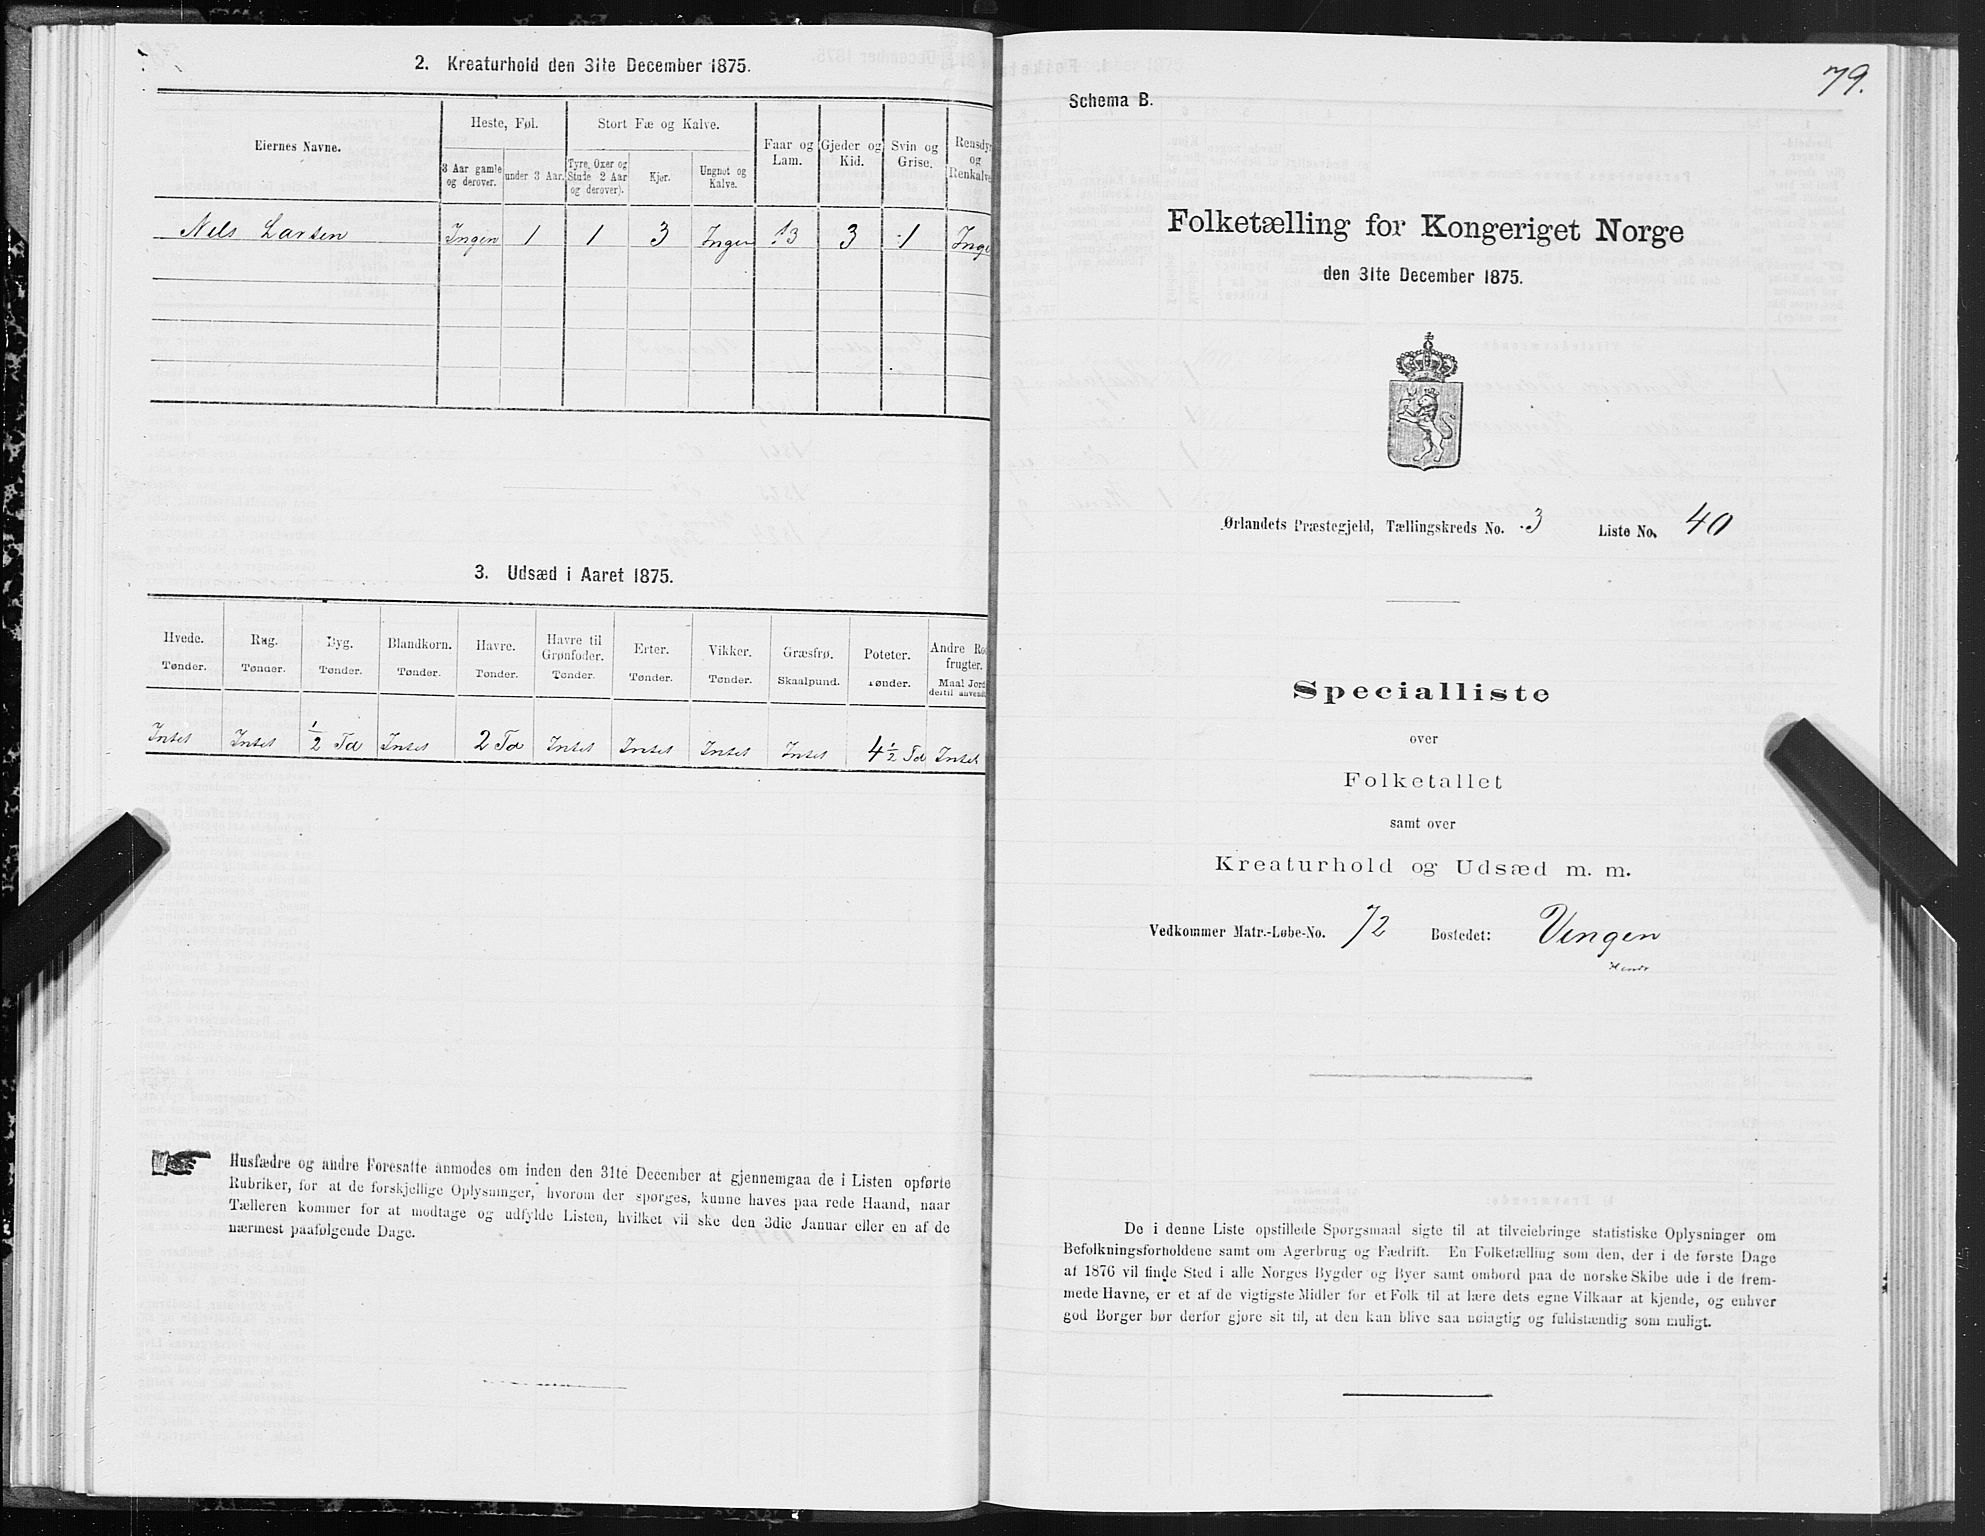 2. Kreaturhold den 31te December 1875.
Eiernes Navne.
Heste, Føl.
Stort Fæ og Kalve.
Faar og Lam.
Gjeder og Kid.
Svin og Grise.
Rensdyr og Renkalve
3 Aar gamle og derover.
under 3 Aar.
Tyre, Oxer og Stude 2 Aar og derover).
Kjør.
Ungnøt og Kalve.
Nels Larsen Ingen 1 1 3 Ingen 13 3 1 Inge
3. Udsæd i Aaret 1875.
Hvede. Tønder.
Rug. Tønder.
Byg. Tønder.
Blandkorn. Tønder.
Havre. Tønder.
Havre til Grønfoder. Tønder.
Erter. Tønder.
Vikker. Tønder.
Græsfrø. Skaalpund.
Poteter. Tønder.
Andre Ro frugter. Maal Jord dertil anvend
Intet Intet 1/2 Td Intet 2 Td Intet Intet Intet Intet 4 1/2 Td Intet
Husfædre og andre Foresatte anmodes om inden den 31te December at gjennemgaa de i Listen opførte
Rubriker, for at de forskjellige Oplysninger, hvorom der spørges, kunne haves paa rede Haand, naar
Tælleren kommer for at modtage og udfylde Listen, hvilket vil ske den 3die Januar eller en af de
nærmest paafølgende Dage.
79.
Schema B.
Folketælling for Kongeriget Norge
den 31te December 1875.
Ørlandets Præstegjeld, Tællingskreds No. 3 Liste No. 40
Specialliste
over
Folketallet
samt over
Kreaturhold og Udsæd m. m.
Vedkommer Matr.-Løbe-No. 72 Bostedet: Vingen
De i denne Liste opstillede Spørgsmaal sigte til at tilveiebringe statistiske Oplysninger om
Befolkningsforholdene samt om Agerbrug og Fædrift. En Folketælling som den, der i de første Dage
af 1876 vil finde Sted i alle Norges Bygder og Byer samt ombord paa de norske Skibe ude i de frem-
mede Havne, er et af de vigtigste Midler for et Folk til at lære dets egne Vilkaar at kjende, og enhver
god Borger bør derfor gjøre sit til, at den kan blive saa nøiagtig og fuldstændig som muligt.